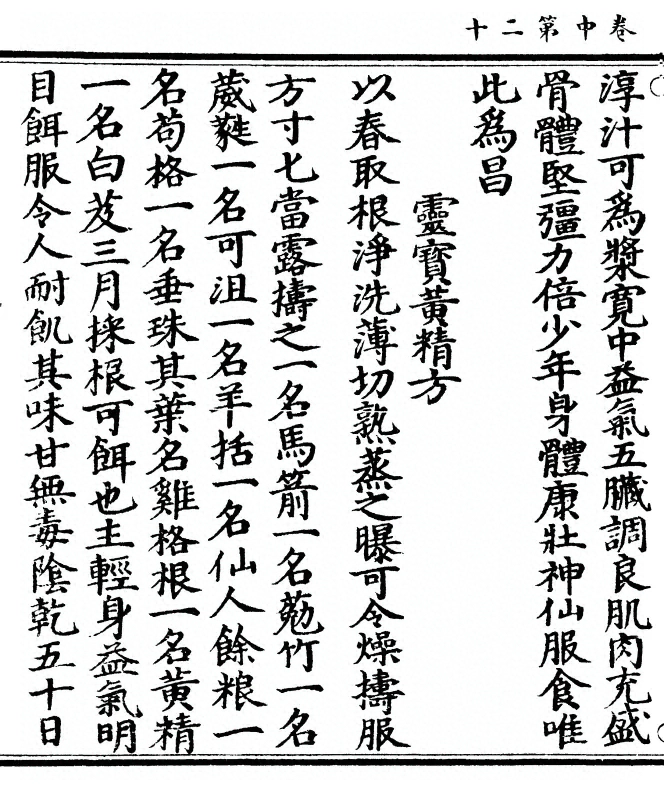 卷中第二十
淳汁可為漿寬中益氣五臟調良肌肉充盛
骨體堅彊力倍少年身體康壯神仙服食唯
此為昌
靈寶黃精方
以春取根淨洗薄切熟蒸之曝可令燥擣服
方寸匕當露擣之一名馬箭一名菟竹一名
葳蕤一名可沮一名羊括一名仙人餘粮一
名苟格一名垂珠其葉名雞格根一名黃精
一名白芨三月採根可餌也主輕身益氣明
目餌服令人耐飢其味甘無毒陰乾五十日